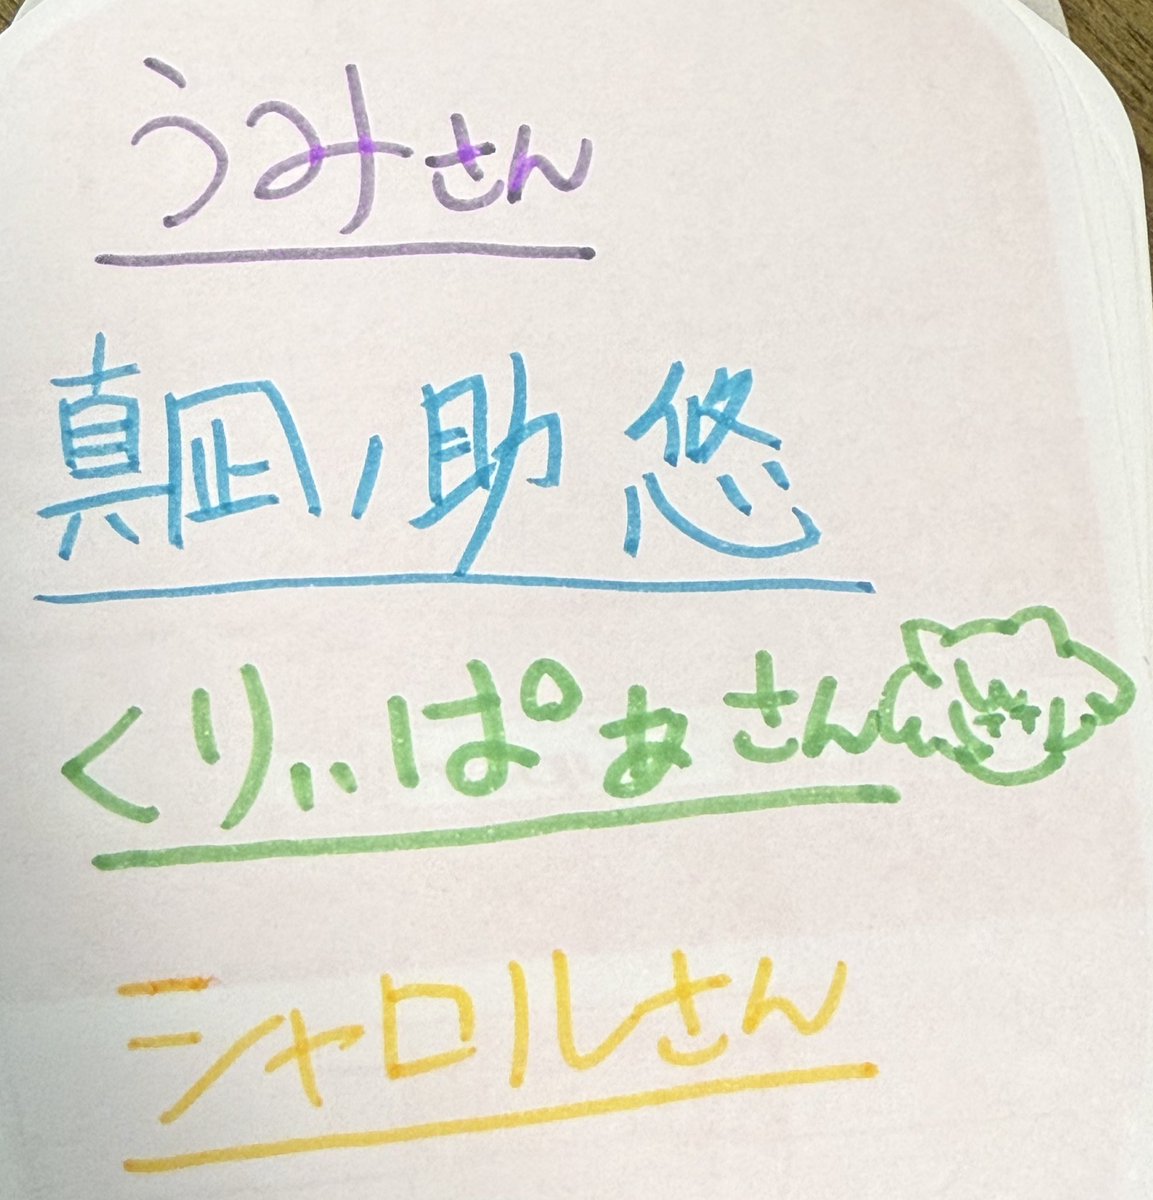 うみさん
真凪ノ助 悠
くりぃぱぁさん
シャロルさん